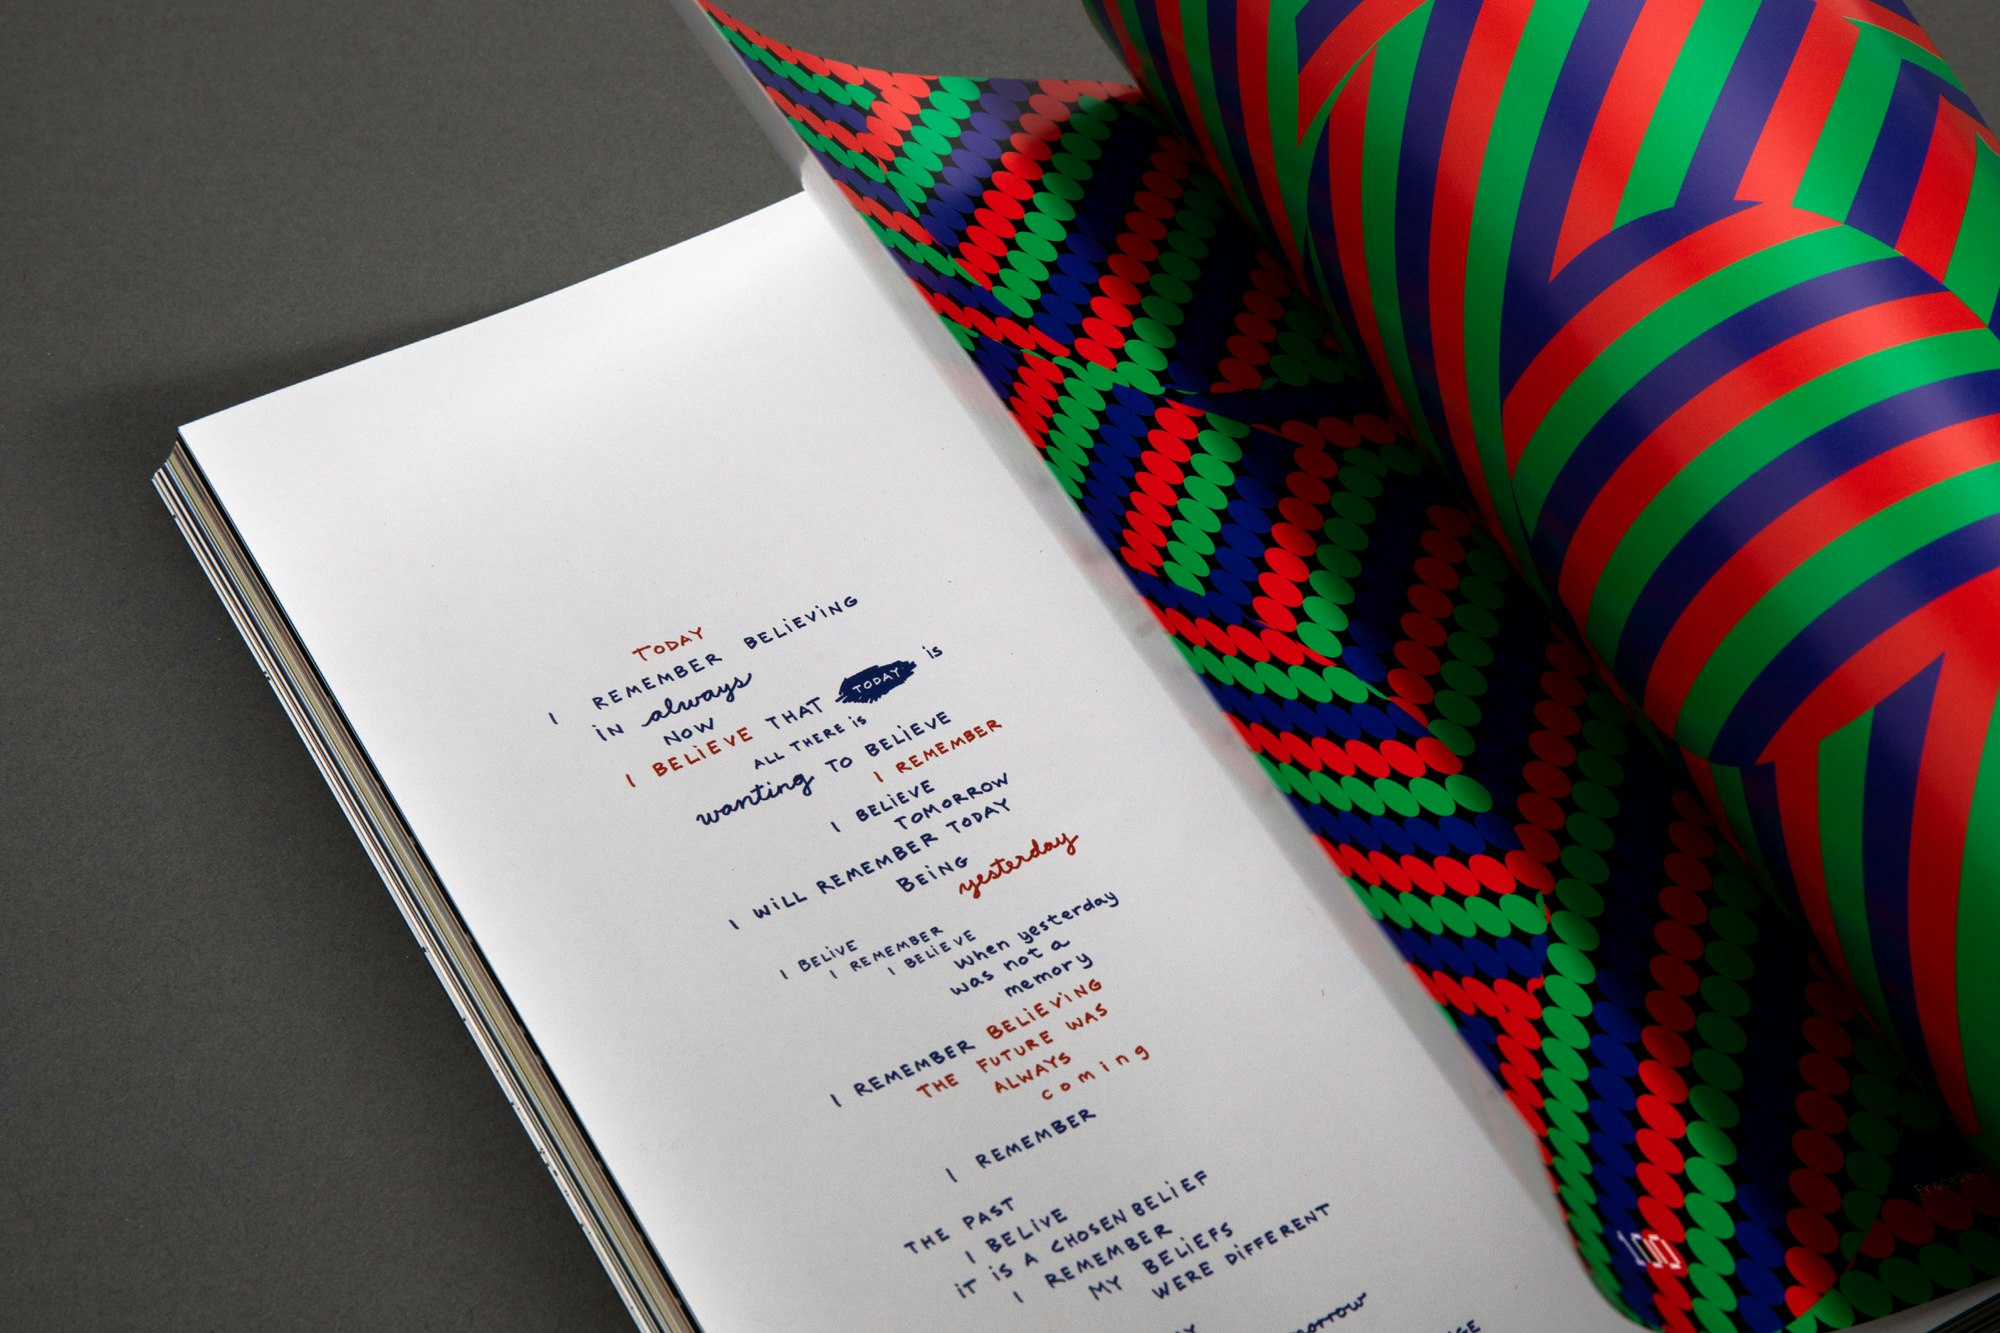 TODAY
I REMEMBER BELIEVING
IN always
NOW
I BELIEVE THAT TODAY is
ALL THERE is
wanting TO BELIEVE
I REMEMBER
I BELIEVE
TOMORROW
I WILL REMEMBER TODAY
BEING yesterday
I BELIVE
I REMEMBER
I BELIEVE
when yesterday
was not a
memory
I REMEMBER BELIEVING
THE FUTURE WAS
ALWAYS
coming
I REMEMBER
THE PAST
I BELIVE
IT IS A CHOSEN BELIEF
I REMEMBER
MY BELIEFS
WERE DIFFERENT
100